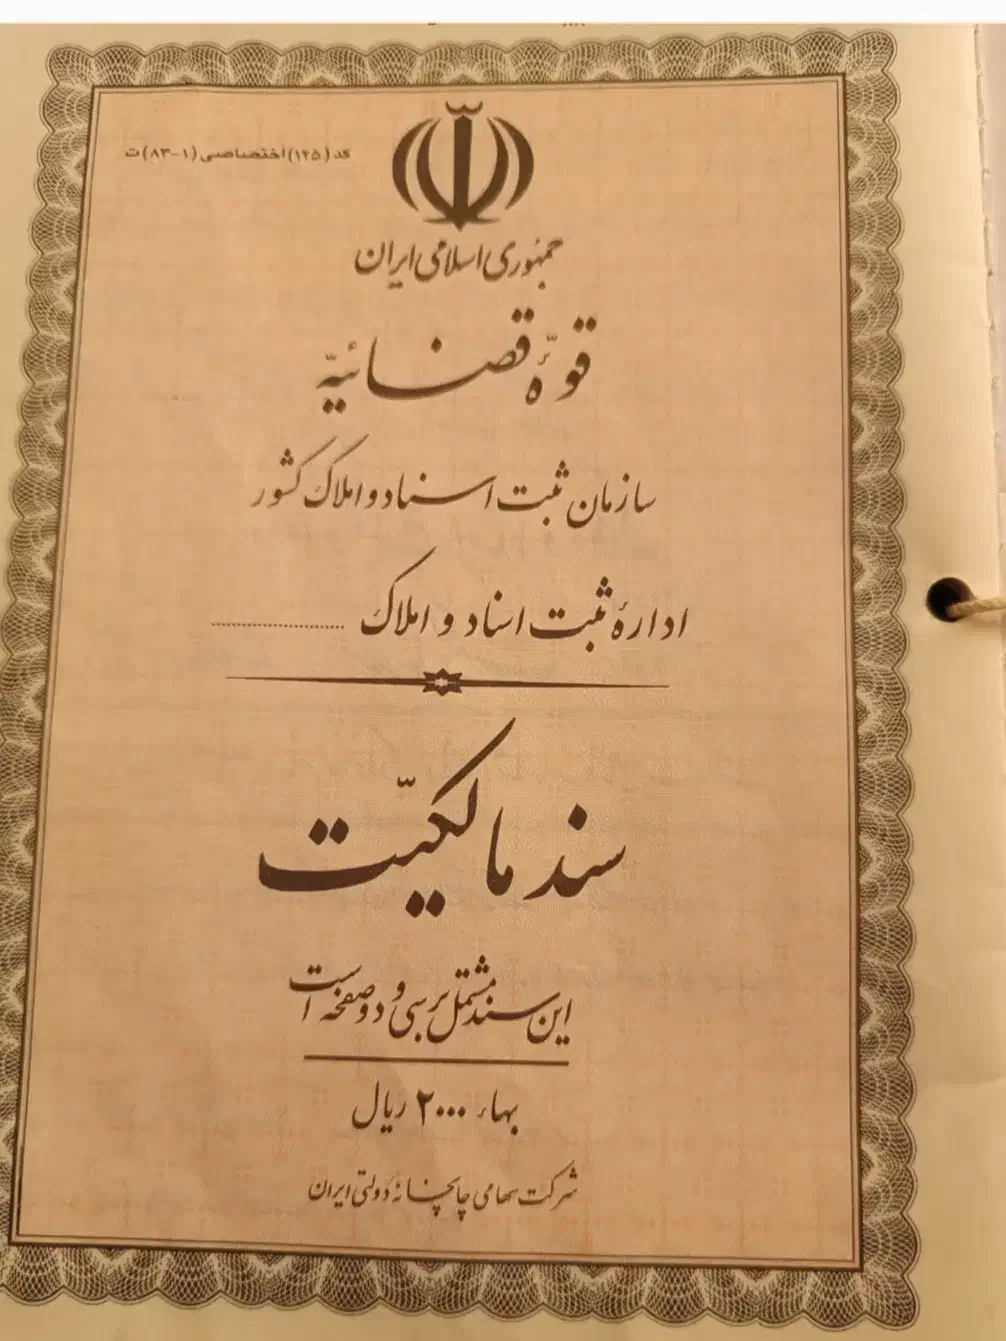 کد (۱۲۵) اختصاصی (۱-۸۳) ت
جمهوری اسلامی ایران
قوّهٔ قضائیّه
سازمان ثبت اسناد و املاک کشور
ادارهٔ ثبت اسناد و املاک ......................
سند مالکیّت
این سند مشتمل بر سی و دو صفحه است
بهاء ۲۰۰۰ ریال
شرکت سهامی چاپخانهٔ دولتی ایران